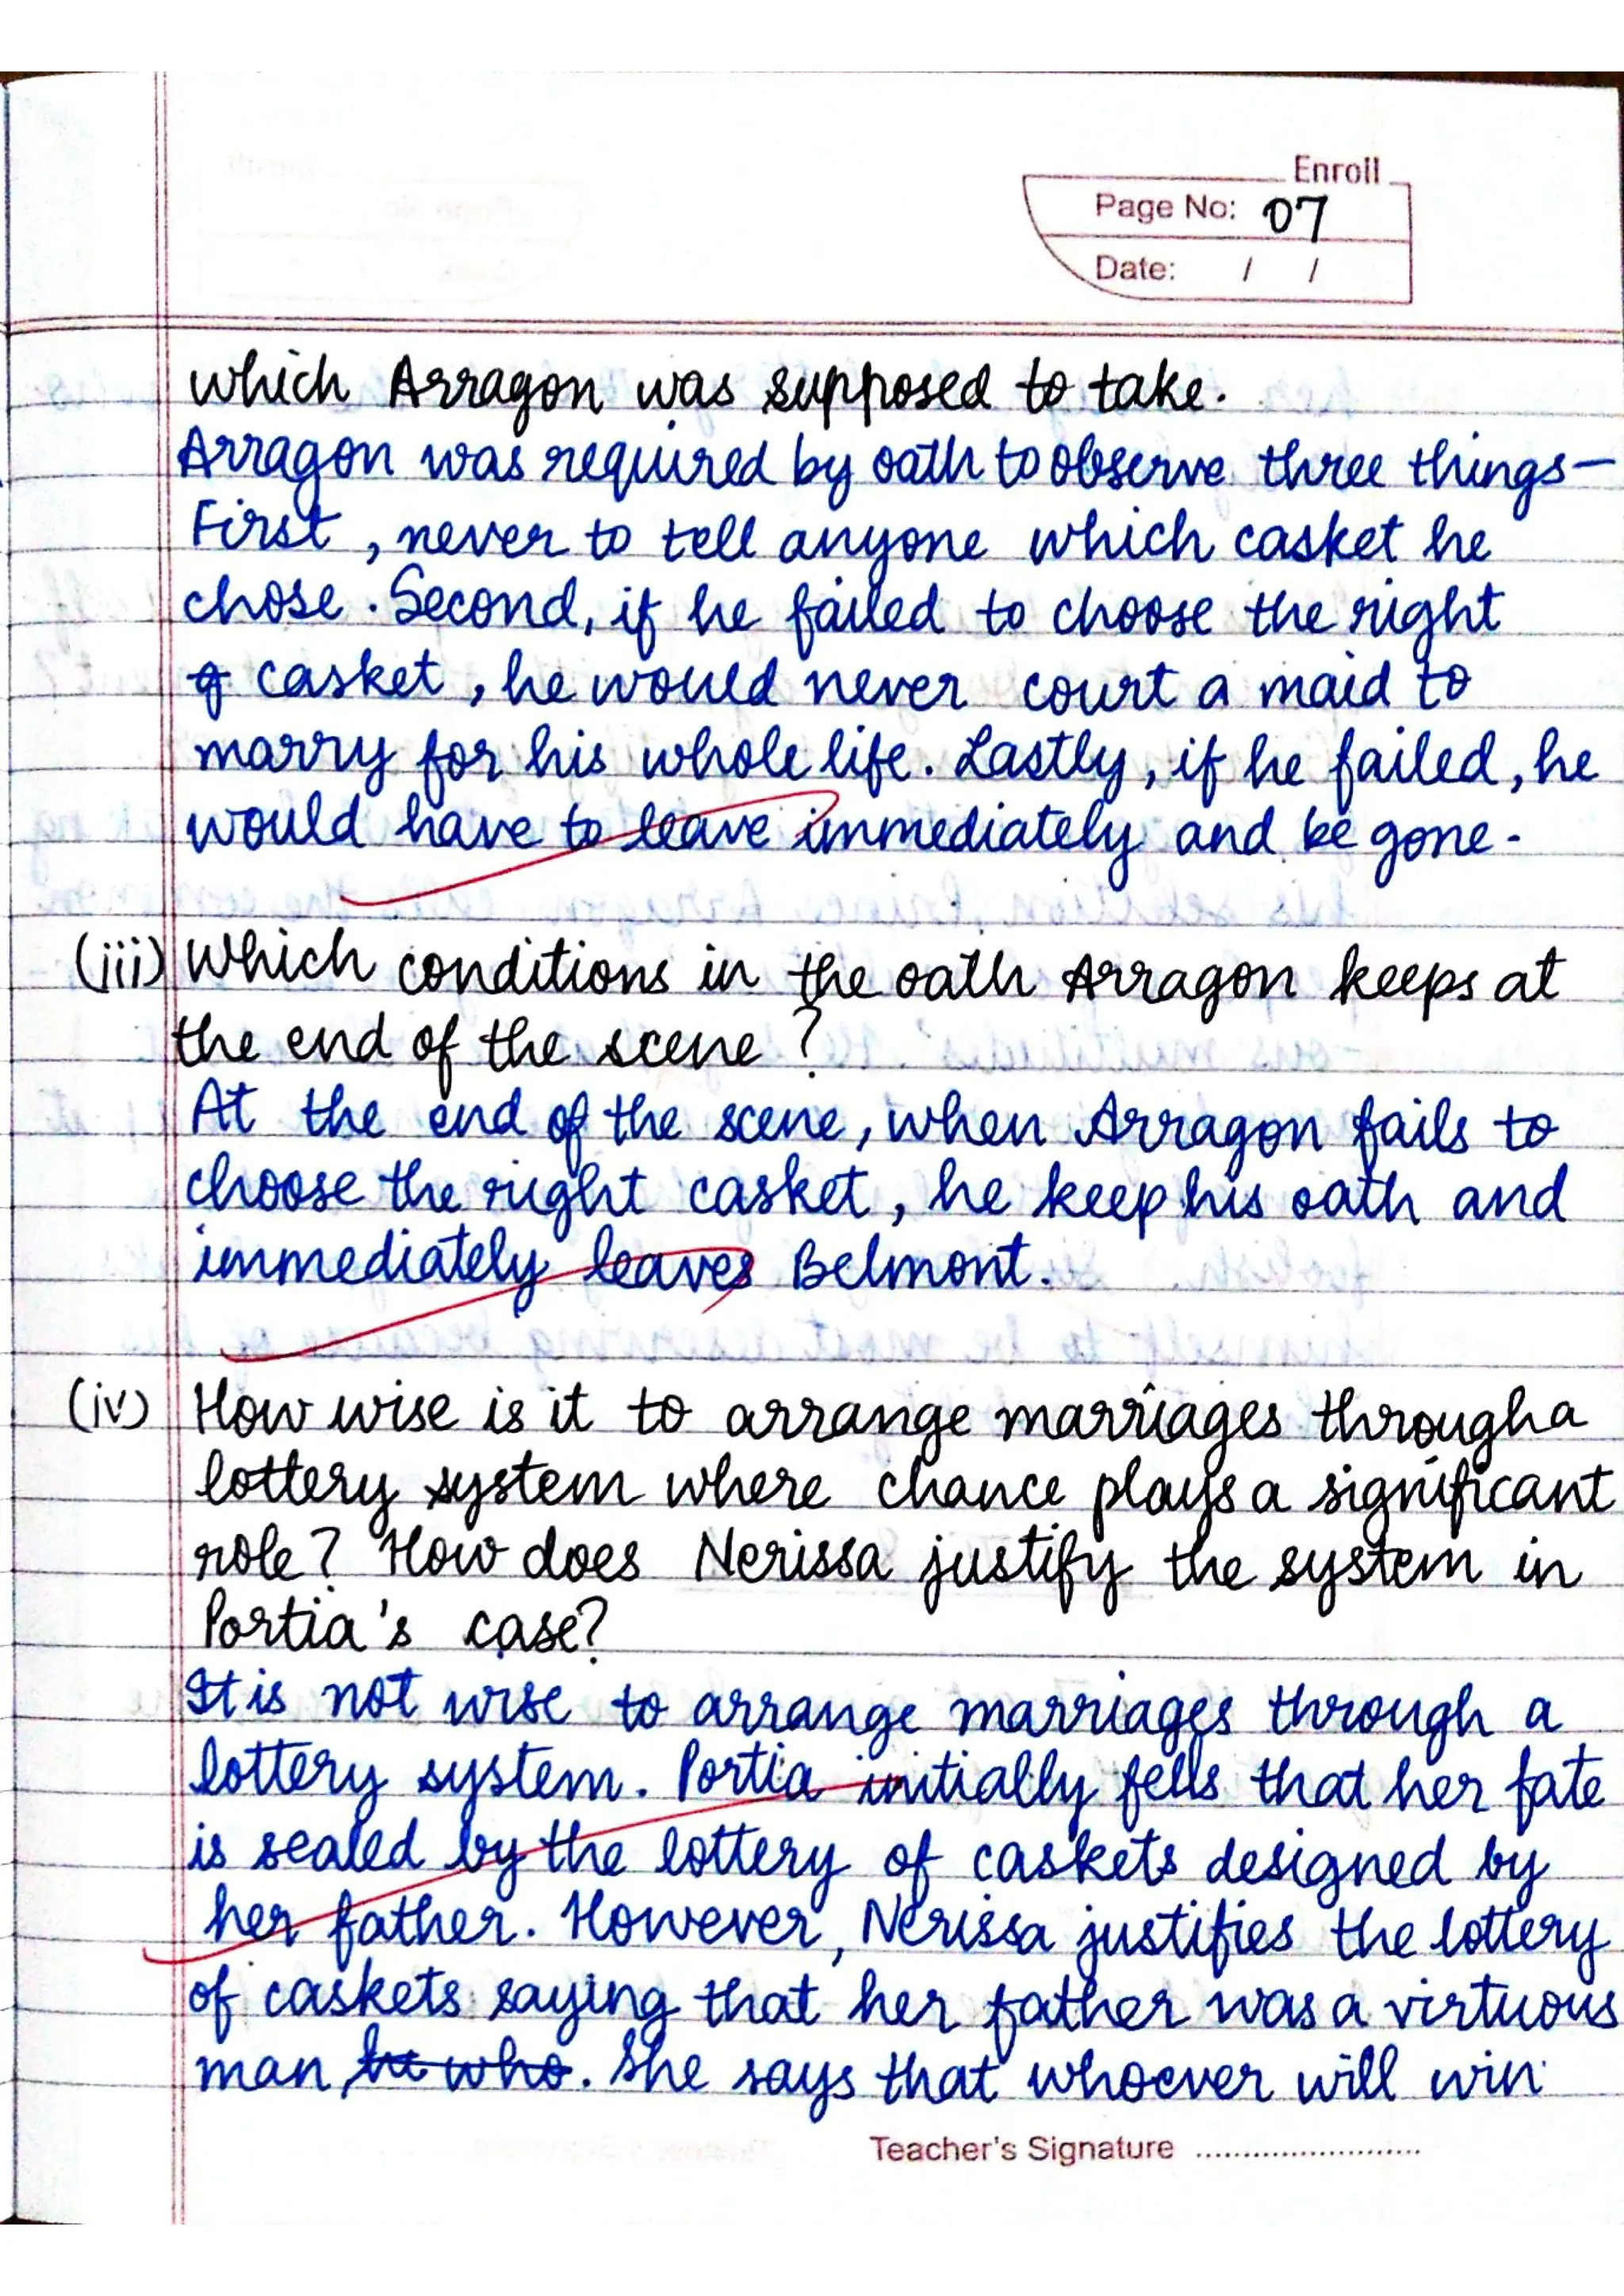 Enroll
Page No: 07
Date: / /
which Arragon was supposed to take.
Arragon was required by oath to observe three things–
First, never to tell anyone which casket he
chose. Second, if he failed to choose the right
casket, he would never court a maid to
marry for his whole life. Lastly, if he failed, he
would have to leave immediately and be gone.
(iii) Which conditions in the oath Arragon keeps at
the end of the scene?
At the end of the scene, when Arragon fails to
choose the right casket, he keep his oath and
immediately leaves Belmont.
(iv) How wise is it to arrange marriages through a
lottery system where chance plays a significant
role? How does Nerissa justify the system in
Portia's case?
It is not wise to arrange marriages through a
lottery system. Portia initially fells that her fate
is sealed by the lottery of caskets designed by
her father. However, Nerissa justifies the lottery
of caskets saying that her father was a virtuous
man, he who. She says that whoever will win
Teacher's Signature ........................